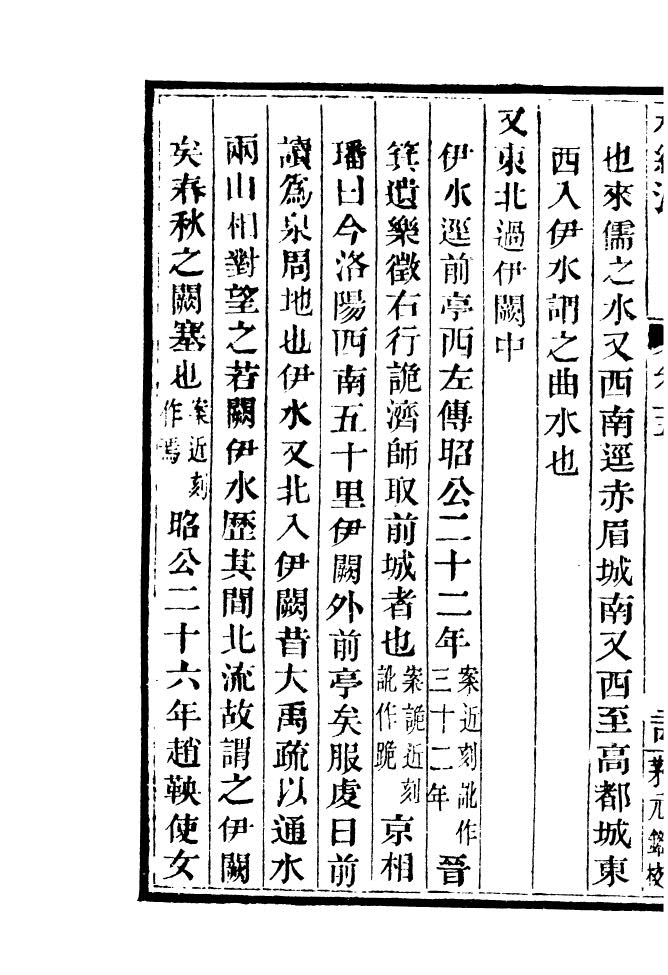 水經注
卷十五
也來儒之水又西南逕赤眉城南又西至高都城東
西入伊水謂之曲水也
又東北過伊闕中
伊水逕前亭西左傳昭公二十二年案近刻訛作三十二年晉
箕遺樂徵右行詭濟師取前城者也案詭近刻訛作跪京相
璠曰今洛陽西南五十里伊闕外前亭矣服虔曰前
讀爲泉周地也伊水又北入伊闕昔大禹疏以通水
兩山相對望之若闕伊水歷其間北流故謂之伊闕
矣春秋之闕塞也案近刻作焉昭公二十六年趙鞅使女